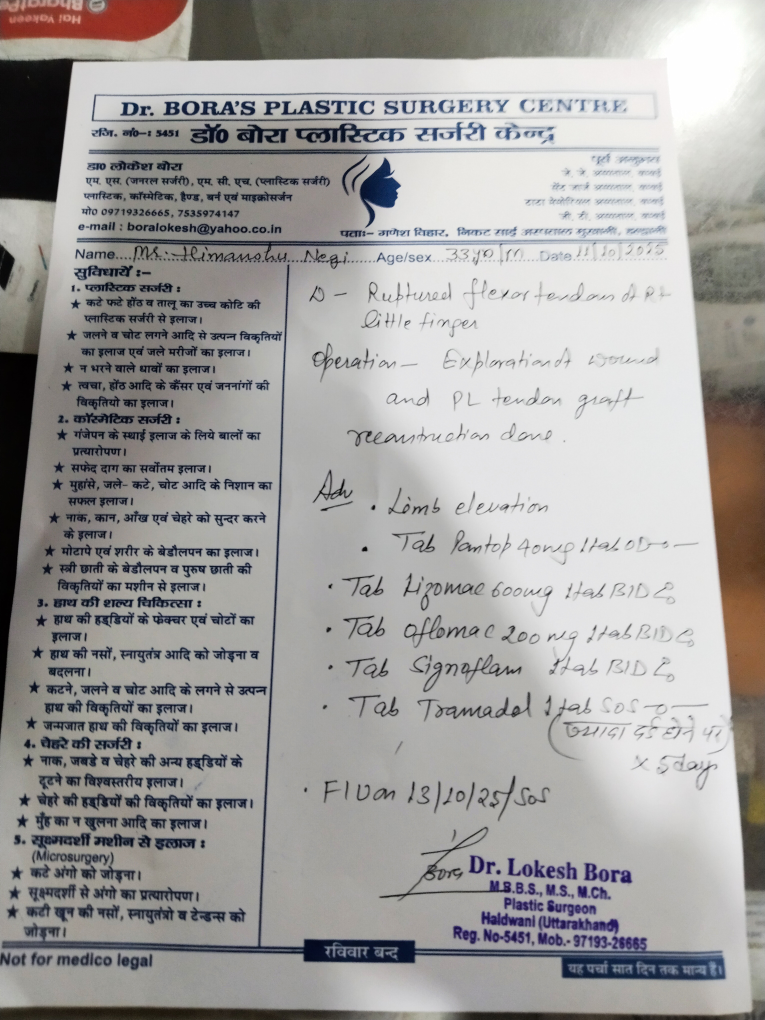 Dr. BORA'S PLASTIC SURGERY CENTRE
रजि. नं०-: 5451 डॉ० बोरा प्लास्टिक सर्जरी केन्द्र
डा० लोकेश बोरा
एम. एस. (जनरल सर्जरी), एम. सी. एच. (प्लास्टिक सर्जरी)
प्लास्टिक, कॉस्मेटिक, हैण्ड, बर्न एवं माइक्रोसर्जन
मो० 09719326665, 7535974147
e-mail : boralokesh@yahoo.co.in
पूर्व अनुभव
पताः- गणेश विहार, निकट साई अस्पताल मुखानी, हल्द्वानी
Name.... Mr. Himanshu Negi .... Age/sex 33yo/M Date 11/10/2025
सुविधायें :-
1. प्लास्टिक सर्जरी :
★ कटे फटे होंठ व तालू का उच्च कोटि की
प्लास्टिक सर्जरी से इलाज।
★ जलने व चोट लगने आदि से उत्पन्न विकृतियों
का इलाज एवं जले मरीजों का इलाज।
★ न भरने वाले घावों का इलाज।
★ त्वचा, होंठ आदि के कैंसर एवं जननांगों की
विकृतियो का इलाज।
2. कॉस्मेटिक सर्जरी :
★ गंजेपन के स्थाई इलाज के लिये बालों का
प्रत्यारोपण।
★ सफेद दाग का सर्वोतम इलाज।
★ मुहांसे, जले- कटे, चोट आदि के निशान का
सफल इलाज।
★ नाक, कान, आँख एवं चेहरे को सुन्दर करने
के इलाज।
★ मोटापे एवं शरीर के बेडौलपन का इलाज।
★ स्त्री छाती के बेडौलपन व पुरुष छाती की
विकृतियों का मशीन से इलाज।
3. हाथ की शल्य चिकित्सा :
★ हाथ की हड्डियों के फ्रेक्चर एवं चोटों का
इलाज।
★ हाथ की नसों, स्नायुतंत्र आदि को जोड़ना व
बदलना।
★ कटने, जलने व चोट आदि के लगने से उत्पन्न
हाथ की विकृतियों का इलाज।
★ जन्मजात हाथ की विकृतियों का इलाज।
4. चेहरे की सर्जरी :
★ नाक, जबडे व चेहरे की अन्य हड्डियों के
टूटने का विश्वस्तरीय इलाज।
★ चेहरे की हड्डियों की विकृतियों का इलाज।
★ मुँह का न खुलना आदि का इलाज।
5. सूक्ष्मदर्शी मशीन से इलाज :
(Microsurgery)
★ कटे अंगो को जोड़ना।
★ सूक्ष्मदर्शी से अंगो का प्रत्यारोपण।
★ कटी खून की नसों, स्नायुतंत्रो व टेन्डन्स को
जोड़ना।
D - Ruptured flexor tendon of Rt
little finger
Operation - Exploration of wound
and PL tendon graft
reconstruction done.
Adv • Limb elevation
• Tab Pantop 40mg 1tab OD
• Tab Lizomac 600mg 1tab BID
• Tab Oflomac 200mg 1tab BID
• Tab Signoflam 1tab BID
• Tab Tramadol 1tab SOS
(ज्यादा दर्द होने पर)
x 5day
• F/U on 13/10/25/SOS
Bora
Dr. Lokesh Bora
M.B.B.S., M.S., M.Ch.
Plastic Surgeon
Haldwani (Uttarakhand)
Reg. No-5451, Mob.- 97193-26665
Not for medico legal
रविवार बन्द
यह पर्चा सात दिन तक मान्य है।